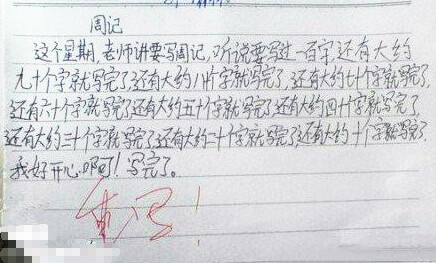 周记
这个星期,老师讲要写周记,听说要写过一百字,还有大约
九十个字就写完了,还有大约八十个字就写完了,还有大约七十个字就写完了,
还有六十个字就写完了还有大约五十个字就写完了还有大约四十个字就写完了
还有大约三十个字就写完了还有大约二十个字就写完了还有大约十个字就写完了.
我好开心啊!写完了。
重写!